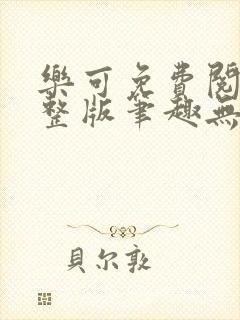 樂可免費閱
整版筆趣無
貝尔敦